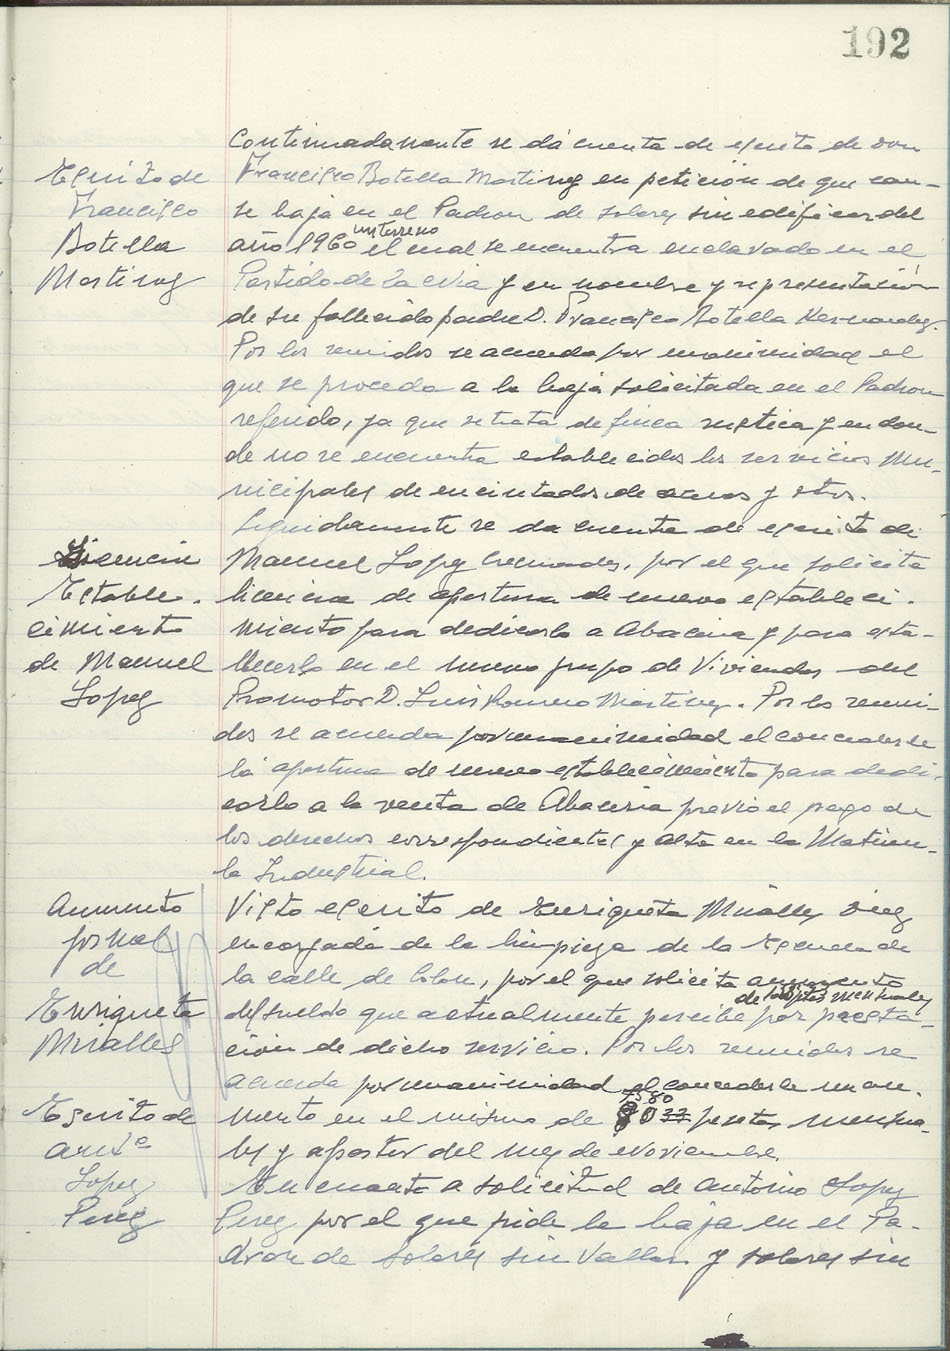 192
Continuadamente se dá cuenta de escrito de don
Escrito de
Francisco
Botella
Martinez
Francisco Botella Martinez en petición de que cau-
se baja en el Padron de solares sin edificar del
un terreno
año 1960 el cual se encuentra enclavado en el
Partido de la y en nombre y representación
de su fallecido padre D. Francisco Botella Hernandez.
Por los reunidos se acuerda por unanimidad el
que se proceda a la baja solicitada en el Padron
referido, ya que se trata de finca rustica y en don-
de no se encuentra establecidos los servicios Mu-
nicipales de encintados de aceras y otros.
Seguidamente se da cuenta de escrito de
Licencia
Estable-
cimiento
de Manuel
Lopez
Manuel Lopez Cremades, por el que solicita
licencia de apertura de nuevo estableci-
miento para dedicarlo a Abaceria y para esta-
blecerlo en el nuevo grupo de Viviendas del
Promotor D. Luis Romero Martinez. Por los reuni-
dos se acuerda por unanimidad el concederle
la apertura de nuevo establecimiento para dedi-
carlo a la venta de Abaceria previo el pago de
los derechos correspondientes y alta en la Matricu-
la Industrial.
Aumento
jornal
de
Enriqueta
Miralles
Visto escrito de Enriqueta Miralles Diez
encargada de la limpieza de la Escuela de
la calle de Colon, por el que solicita aumento
de ptas mensuales
del sueldo que actualmente percibe por presta-
ción de dicho servicio. Por los reunidos se
acuerda por unanimidad el concederle un au-
mento en el mismo de pesetas mensua-
les y a partir del mes de Noviembre.
Escrito de
Antº
Lopez
Perez
En cuanto a solicitud de Antonio Lopez
Perez por el que pide la baja en el Pa-
dron de solares sin vallar y solares sin